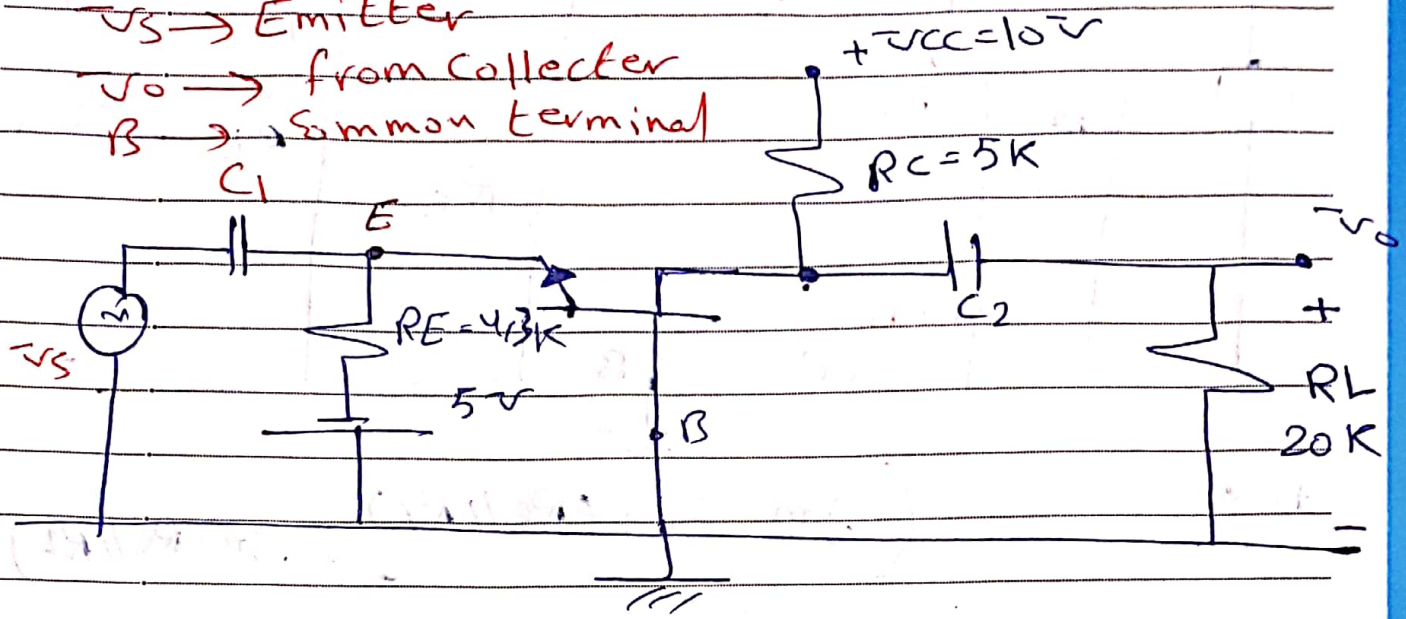 VS → Emitter
Vo → from Collecter
B → Common terminal
+VCC=10V
RC=5K
C1
E
Vo
C2
+
RE=4,3K
VS
5V
RL
20K
B
-